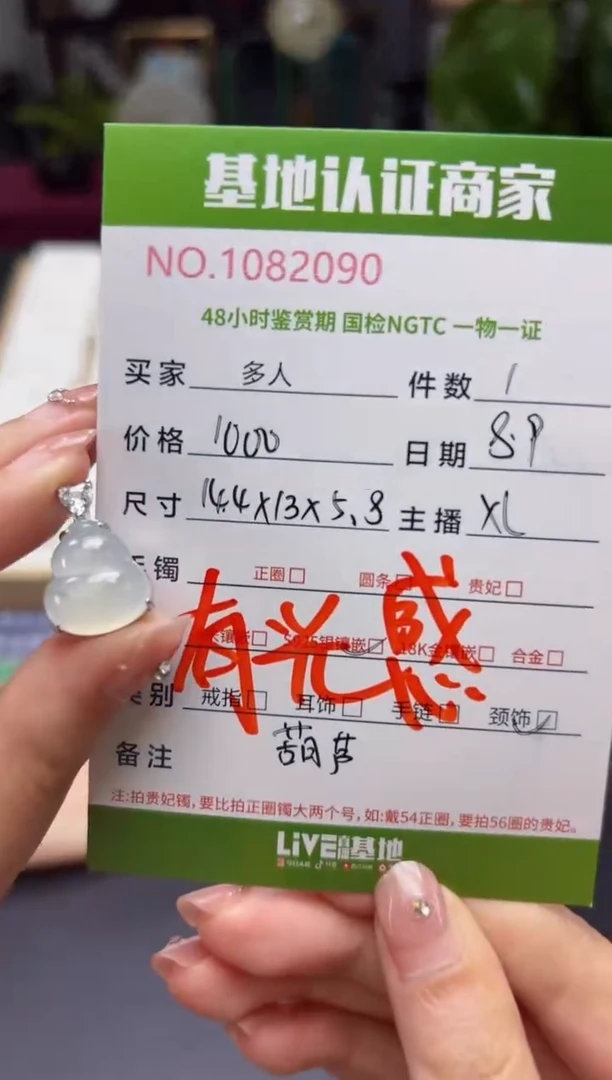 基地认证商家
NO.1082090
48小时鉴赏期 国检NGTC 一物一证
买家 多人 件数 1
价格 1000 日期 8.9
尺寸 14.4X13X5.8 主播 XL
手镯 正圈 圆条 贵妃
有光感
S925银镶嵌 18K金镶嵌 合金
类别 戒指 耳饰 手链 颈饰
备注 葫芦
注:拍贵妃镯,要比拍正圈镯大两个号,如:戴54正圈,要拍56圈的贵妃。
LiVE直播基地